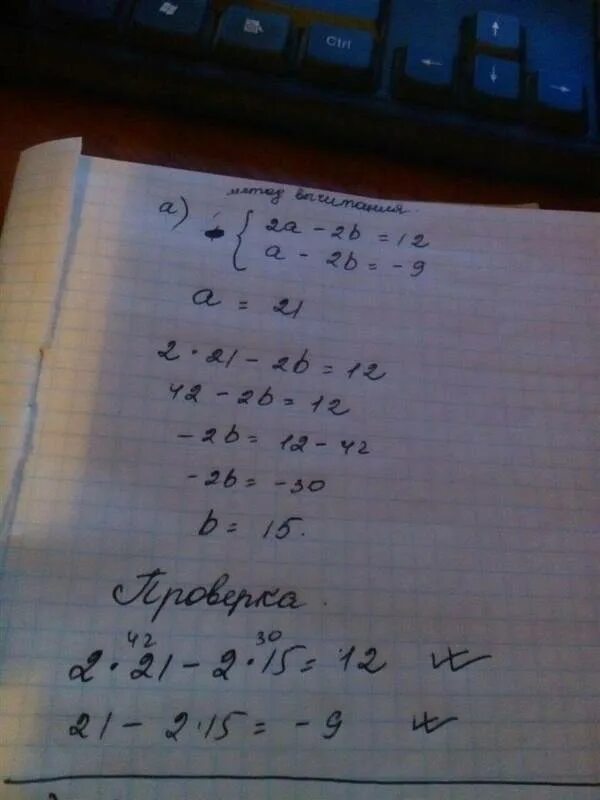 Ctrl
↑
←
↓
→
метод вычитания.
а) { 2a - 2b = 12
a - 2b = -9
a = 21
2 · 21 - 2b = 12
42 - 2b = 12
-2b = 12 - 42
-2b = -30
b = 15.
Проверка.
42 30
2 · 21 - 2 · 15 = 12
21 - 2·15 = -9